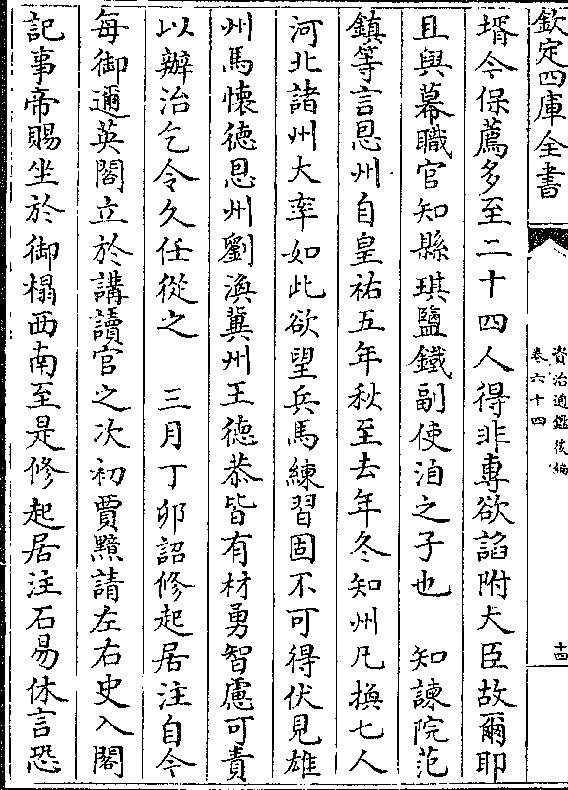 欽定四庫全書
資治通鑑後編
卷六十四
十四
壻今保薦多至二十四人得非專欲諂附大臣故爾耶
且與幕職官知縣琪鹽鐵副使洎之子也　知諫院范
鎮等言恩州自皇祐五年秋至去年冬知州凡換七人
河北諸州大率如此欲望兵馬練習固不可得伏見雄
州馬懷徳恩州劉渙冀州王徳恭皆有材勇智慮可責
以辦治乞令久任從之　三月丁卯詔修起居注自今
每御邇英閣立於講讀官之次初賈黯請左右史入閣
記事帝賜坐於御榻西南至是修起居注石昜休言恐